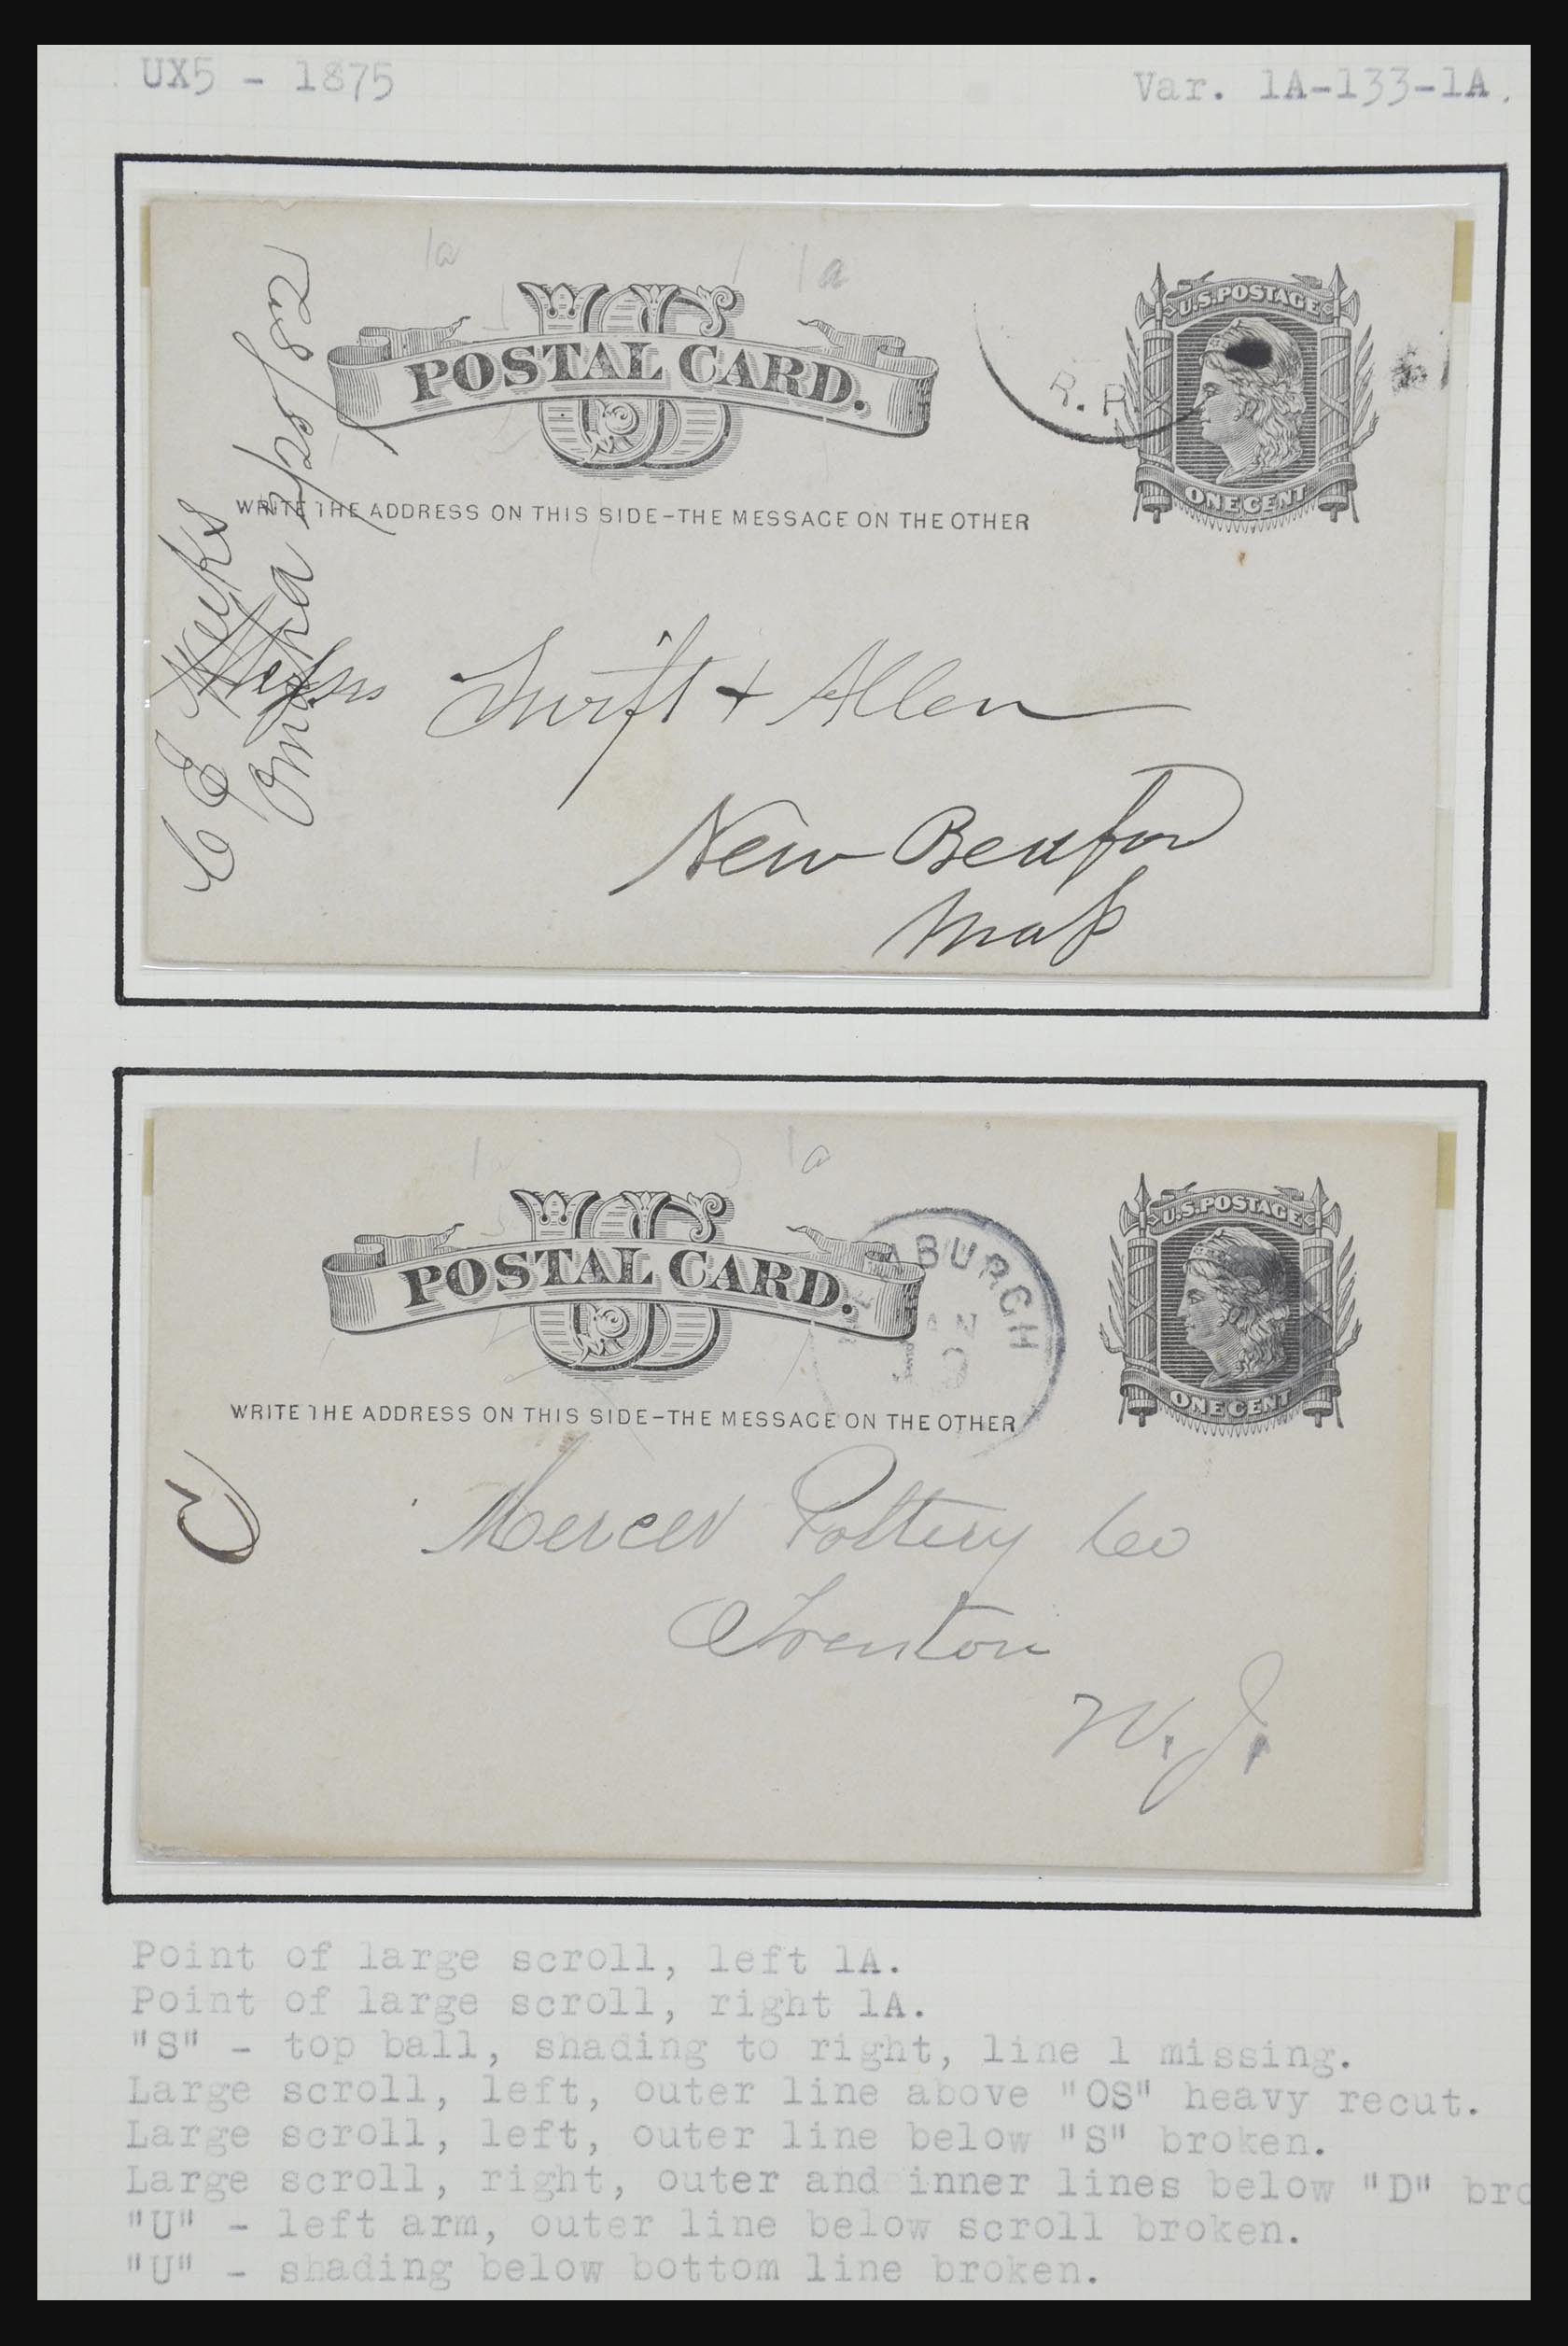 UX5 - 1875
Var. 1A-133-1A.
1a
1a
US
POSTAL CARD.
WRITE THE ADDRESS ON THIS SIDE-THE MESSAGE ON THE OTHER
U.S. POSTAGE
ONE CENT
R.R
C E Weeks
Omaha
/82
Swift + Allen
New Bedford
Mass
1a
1a
US
POSTAL CARD.
WRITE THE ADDRESS ON THIS SIDE-THE MESSAGE ON THE OTHER
BURGH
JAN
U.S. POSTAGE
ONE CENT
C
Mercer Pottery Co
Trenton
N. J.
Point of large scroll, left 1A.
Point of large scroll, right 1A.
"S" - top ball, shading to right, line 1 missing.
Large scroll, left, outer line above "OS" heavy recut.
Large scroll, left, outer line below "S" broken.
Large scroll, right, outer and inner lines below "D" bro
"U" - left arm, outer line below scroll broken.
"U" - shading below bottom line broken.